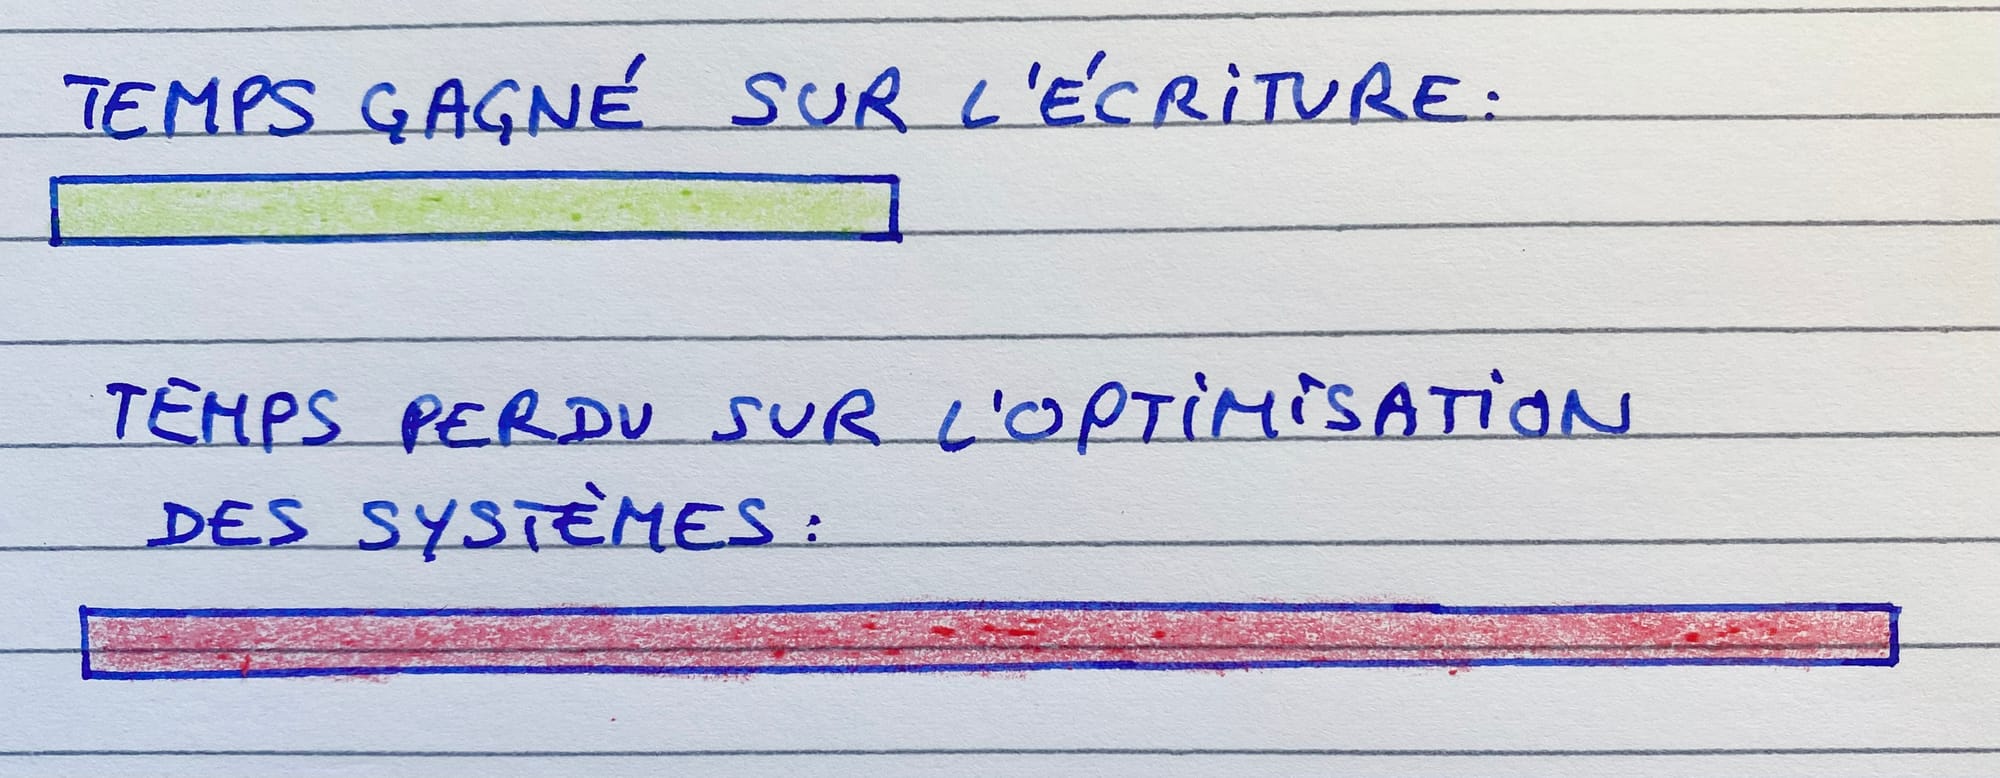 TEMPS GAGNÉ SUR L'ÉCRITURE:
TEMPS PERDU SUR L'OPTIMISATION
DES SYSTÈMES: